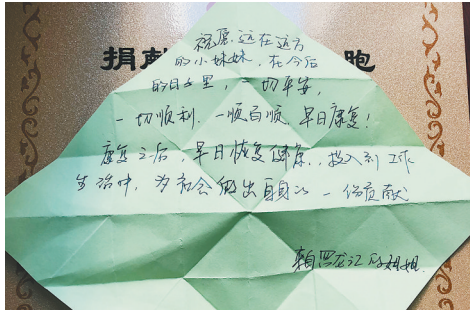 捐献 胞
祝愿远在远方
的小妹妹,在今后
的日子里,一切平安,
一切顺利.一顺百顺,早日康复!
康复之后,早日恢复健康,投入到工作
生活中,为社会做出自己的一份贡献
来自黑龙江 姐姐.